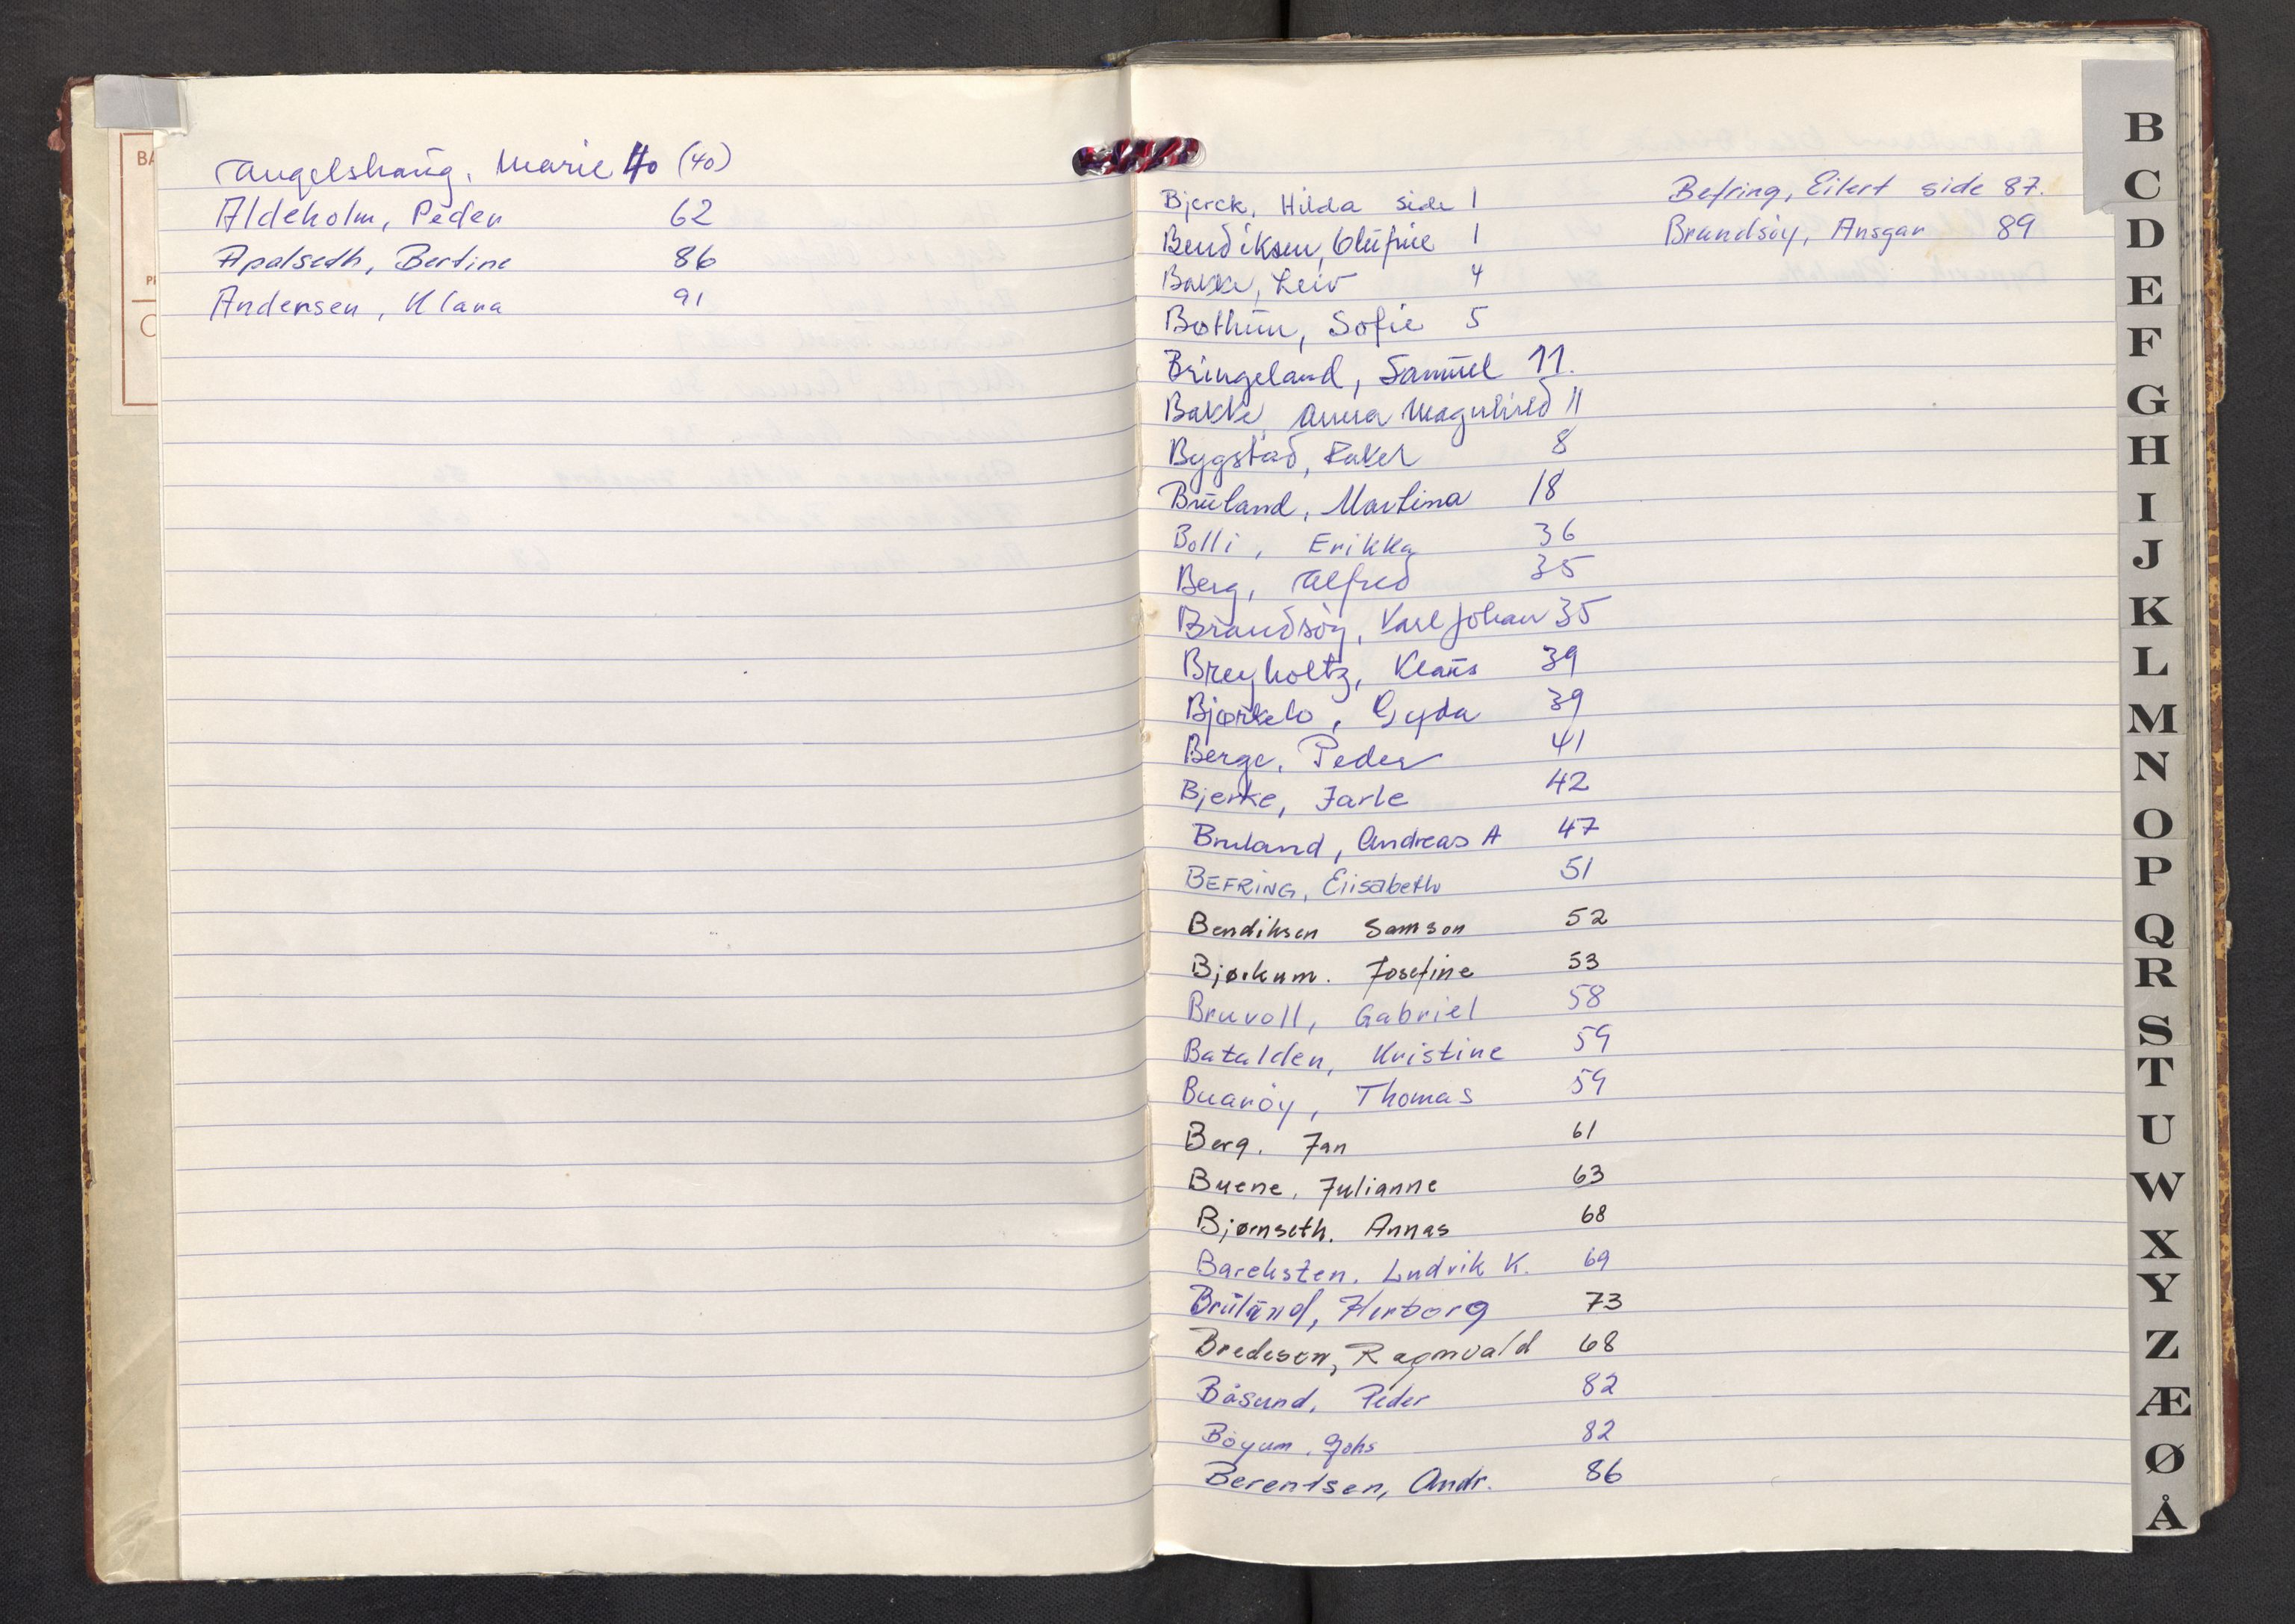 BA
P
C
Angelshaug, Marie 40 (40)
Aldeholm, Peder 62
Apalseth, Bertine 86
Andersen, Klara 91
Bjerck, Hilda side 1
Bendiksen, Olufine 1
Bakke, Leiv 4
Bothun, Sofie 5
Bringeland, Samuel 11.
Bakke, Anna Magnhild 11
Bygstad, Rakel 8
Bruland, Martina 18
Bolli, Erikka 36
Berg, Alfred 35
Brandsøy, Karl Johan 35
Breyholtz, Klaus 39
Bjørkelo, Gyda 39
Berge, Peder 41
Bjerke, Jarle 42
Bruland, Andreas A 47
BEFRING, Elisabeth 51
Bendiksen Samson 52
Bjørkum. Josefine 53
Bruvoll, Gabriel 58
Batalden, Kristine 59
Buarøy, Thomas 59
Berg. Jan 61
Buene, Julianne 63
Bjørnseth. Annas 68
Bareksten. Ludvik K. 69
Bruland, Herborg 73
Bredesen, Ragnvald 68
Båsund, Peder 82
Böyum, Johs 82
Berentsen, Andr. 86
Befring, Eilert side 87.
Brandsöy, Ansgar 89
B
C
D
E
F
G
H
I
J
K
L
M
N
O
P
Q
R
S
T
U
W
X
Y
Z
Æ
Ø
Å